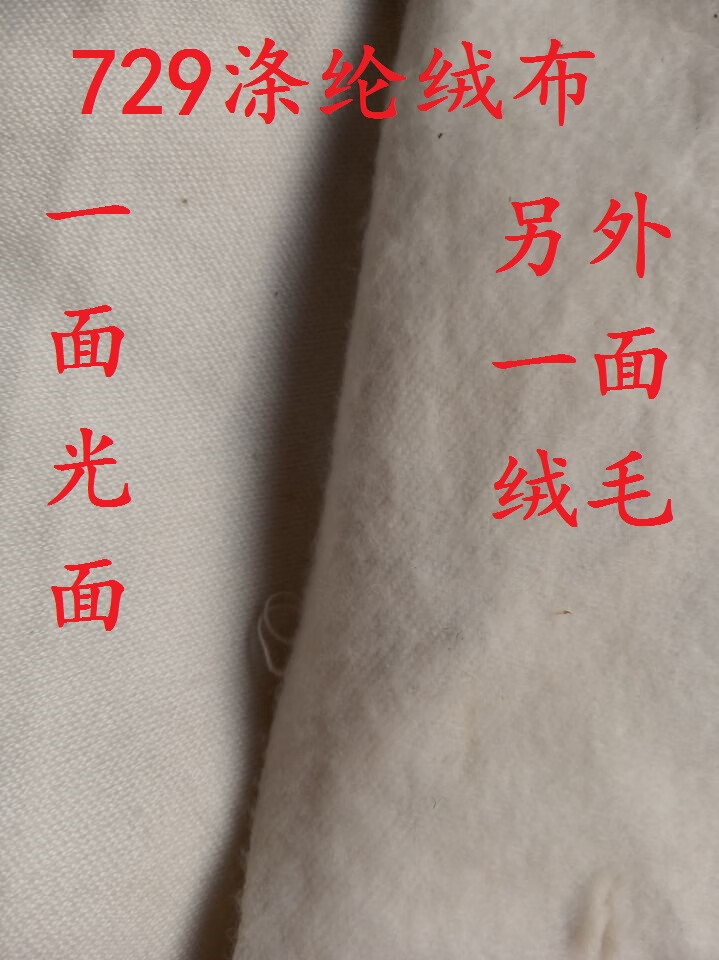 729涤纶绒布
一面光面
另外
一面
绒毛